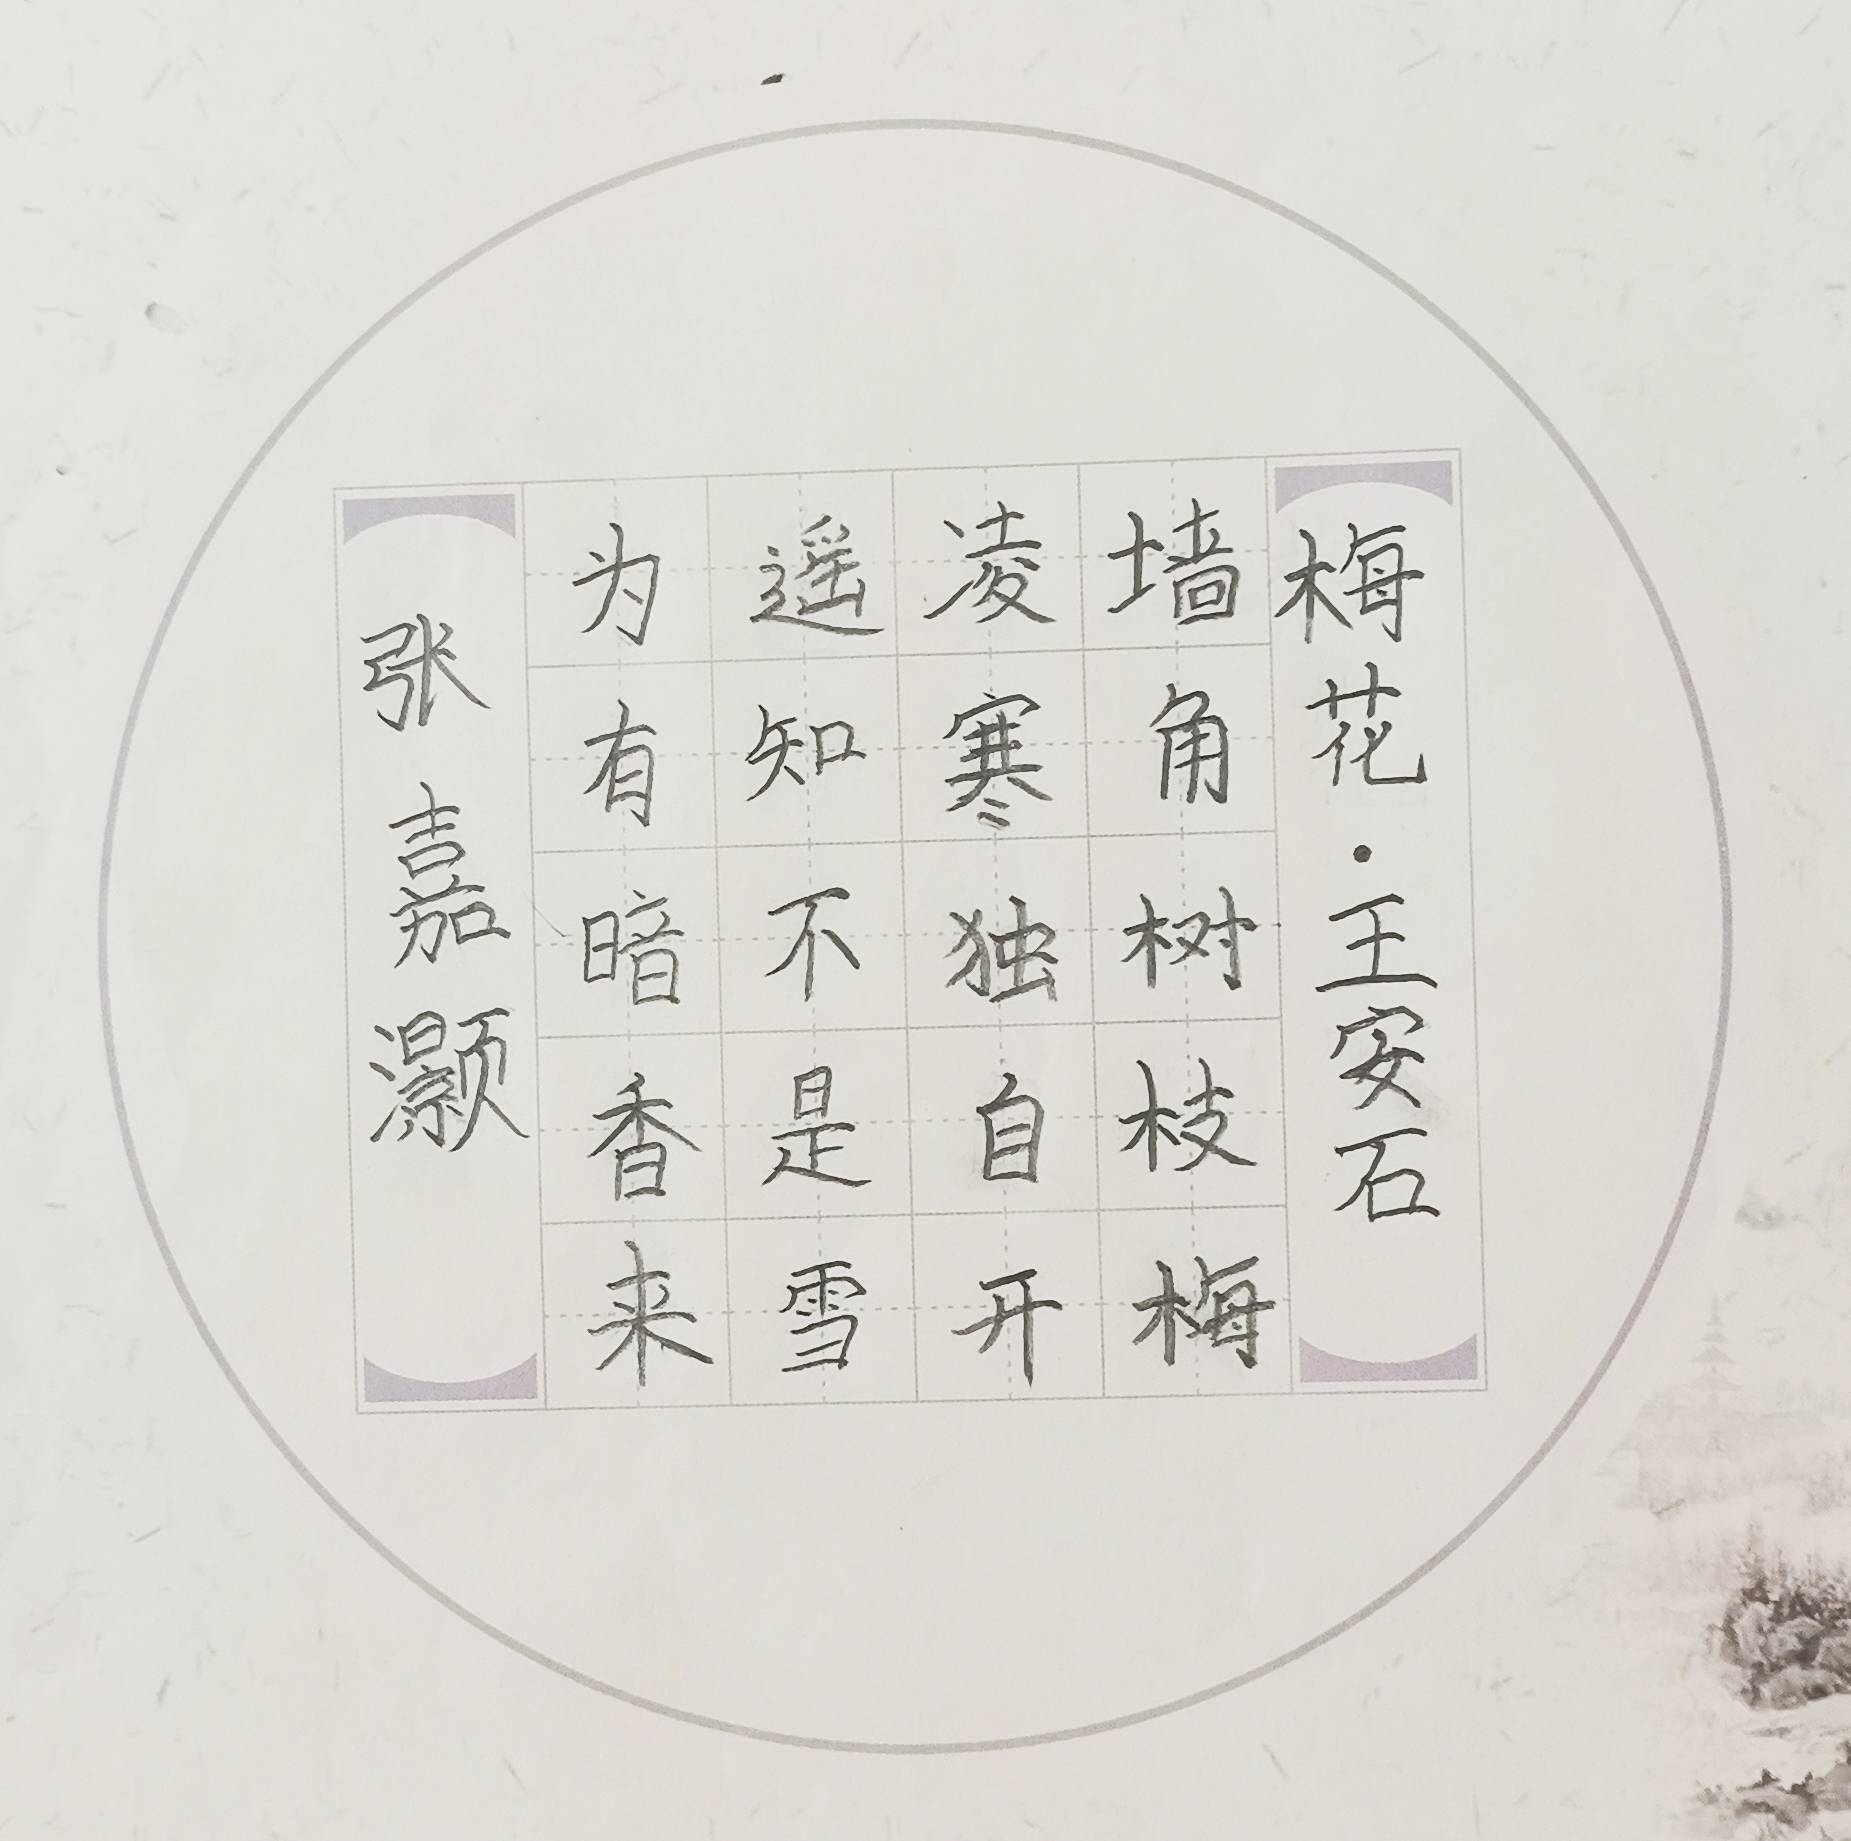 梅花·王安石
墙角树枝梅
凌寒独自开
遥知不是雪
为有暗香来
张嘉灏